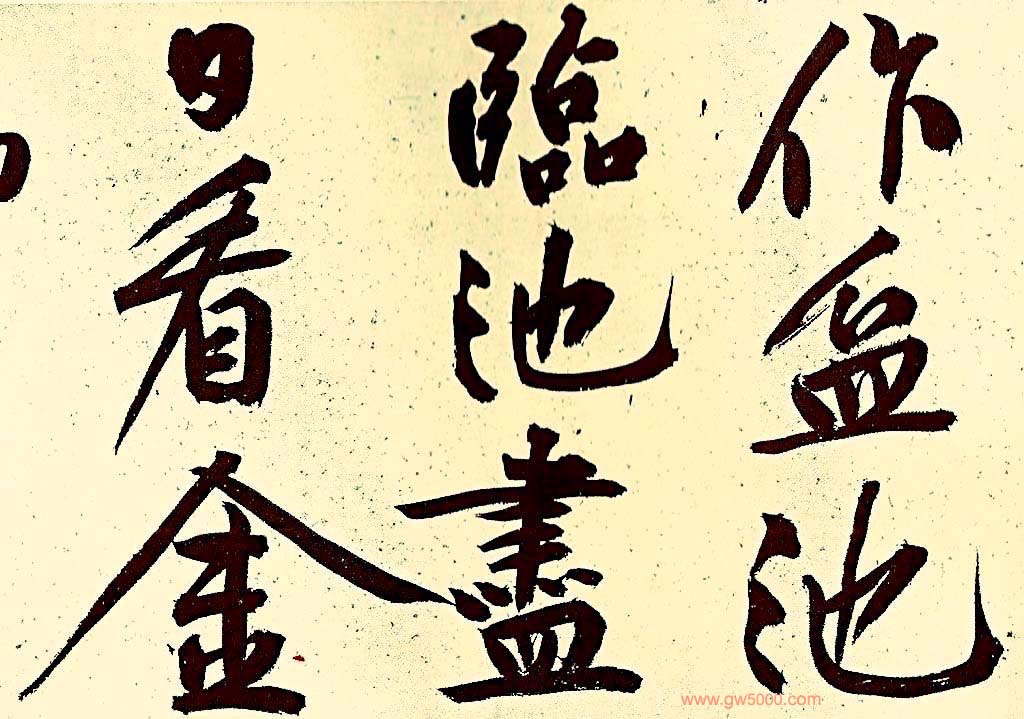 作盆池
臨池盡
日看金
www.gw5000.com